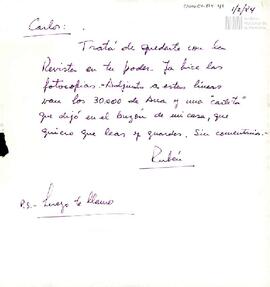 1/2/84
Carlos:
Tratá de quedarte con la
Revista en tu poder. Ya hice las
fotocopias. - Adjunto a estas líneas
van los 30.000 de Ana y una "cartita"
que dejó en el buzón de mi casa, que
quiero que leas y guardes. Sin comentarios.-
Rubén
P.D.- Luego te llamo